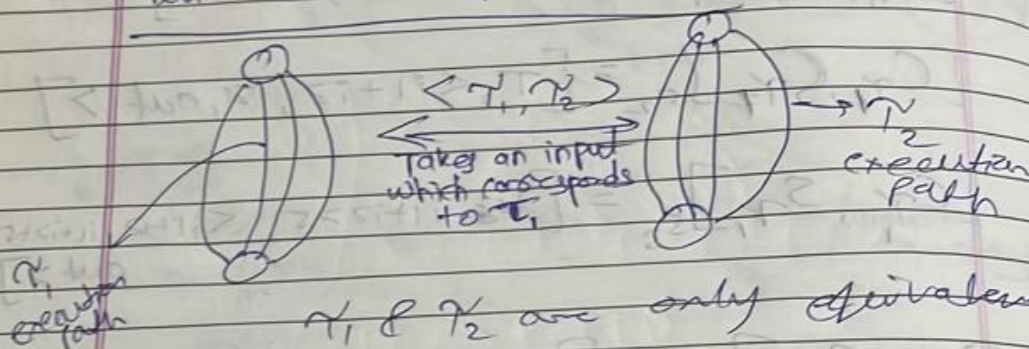 < τ₁, τ₂ >
Takes an input
which corresponds
to τ₁
→ τ₂
execution
path
τ₁
execution
path
τ₁ & τ₂ are only equivalen